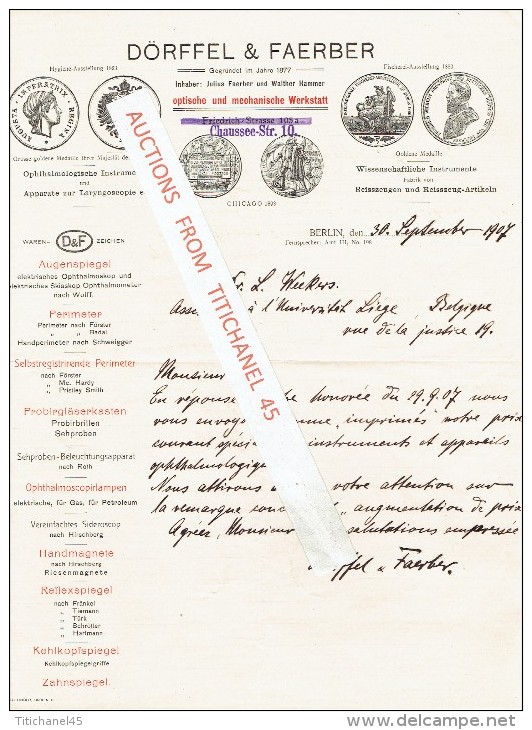 DÖRFFEL & FAERBER
Gegründet im Jahre 1877
Inhaber: Julius Faerber und Walther Hammer
optische und mechanische Werkstatt
Friedrich-Strasse 105a
Chaussee-Str. 10.
Hygiene-Ausstellung 1883
AUGUSTA IMPERATRIX REGINA
Grosse goldene Medaille Ihrer Majestät de
Ophthalmologische Instrume
und
Apparate zur Laryngoscopie e
CHICAGO 1893
Fischerei-Ausstellung 1880
Goldene Medaille
Wissenschaftliche Instrumente
Fabrik von
Reisszeugen und Reisszeug-Artikeln
BERLIN, den 30. September 1907
Fernsprecher: Amt III, No. 108
WAREN- D&F ZEICHEN
Augenspiegel
elektrisches Ophthalmoskop und
elektrisches Skiaskop Ophthalmometer
nach Wolff.
Perimeter
Perimeter nach Förster
„ „ Badal
Handperimeter nach Schweigger
Selbstregistrirende Perimeter
nach Förster
„ Mc. Hardy
„ Pristley Smith
Probirgläserkasten
Probirbrillen
Sehproben
Sehproben-Beleuchtungsapparat
nach Roth
Ophthalmoscopirlampen
elektrische, für Gas, für Petroleum
Vereinfachtes Sideroscop
nach Hirschberg
Handmagnete
nach Hirschberg
Riesenmagnete
Reflexspiegel
nach Fränkel
„ Tiemann
„ Türk
„ Schrötter
„ Hartmann
Kehlkopfspiegel
Kehlkopfspiegelgriffe
Zahnspiegel.
r. L. Weekers.
Asse à l'Université Liege, Belgique
rue de la justice 19.
Monsieur
En réponse honorée du 19.9.07 nous
vous envoyo imprimés notre prix
courant spéci instruments et appareils
ophthalmologiq
Nous attirons votre attention sur
la remarque con augmentation de prix
Agréez, Monsieur salutations empressée
ffel & Faerber.
AUCTIONS FROM TITICHANEL 45
Titichanel45
delcampe.net